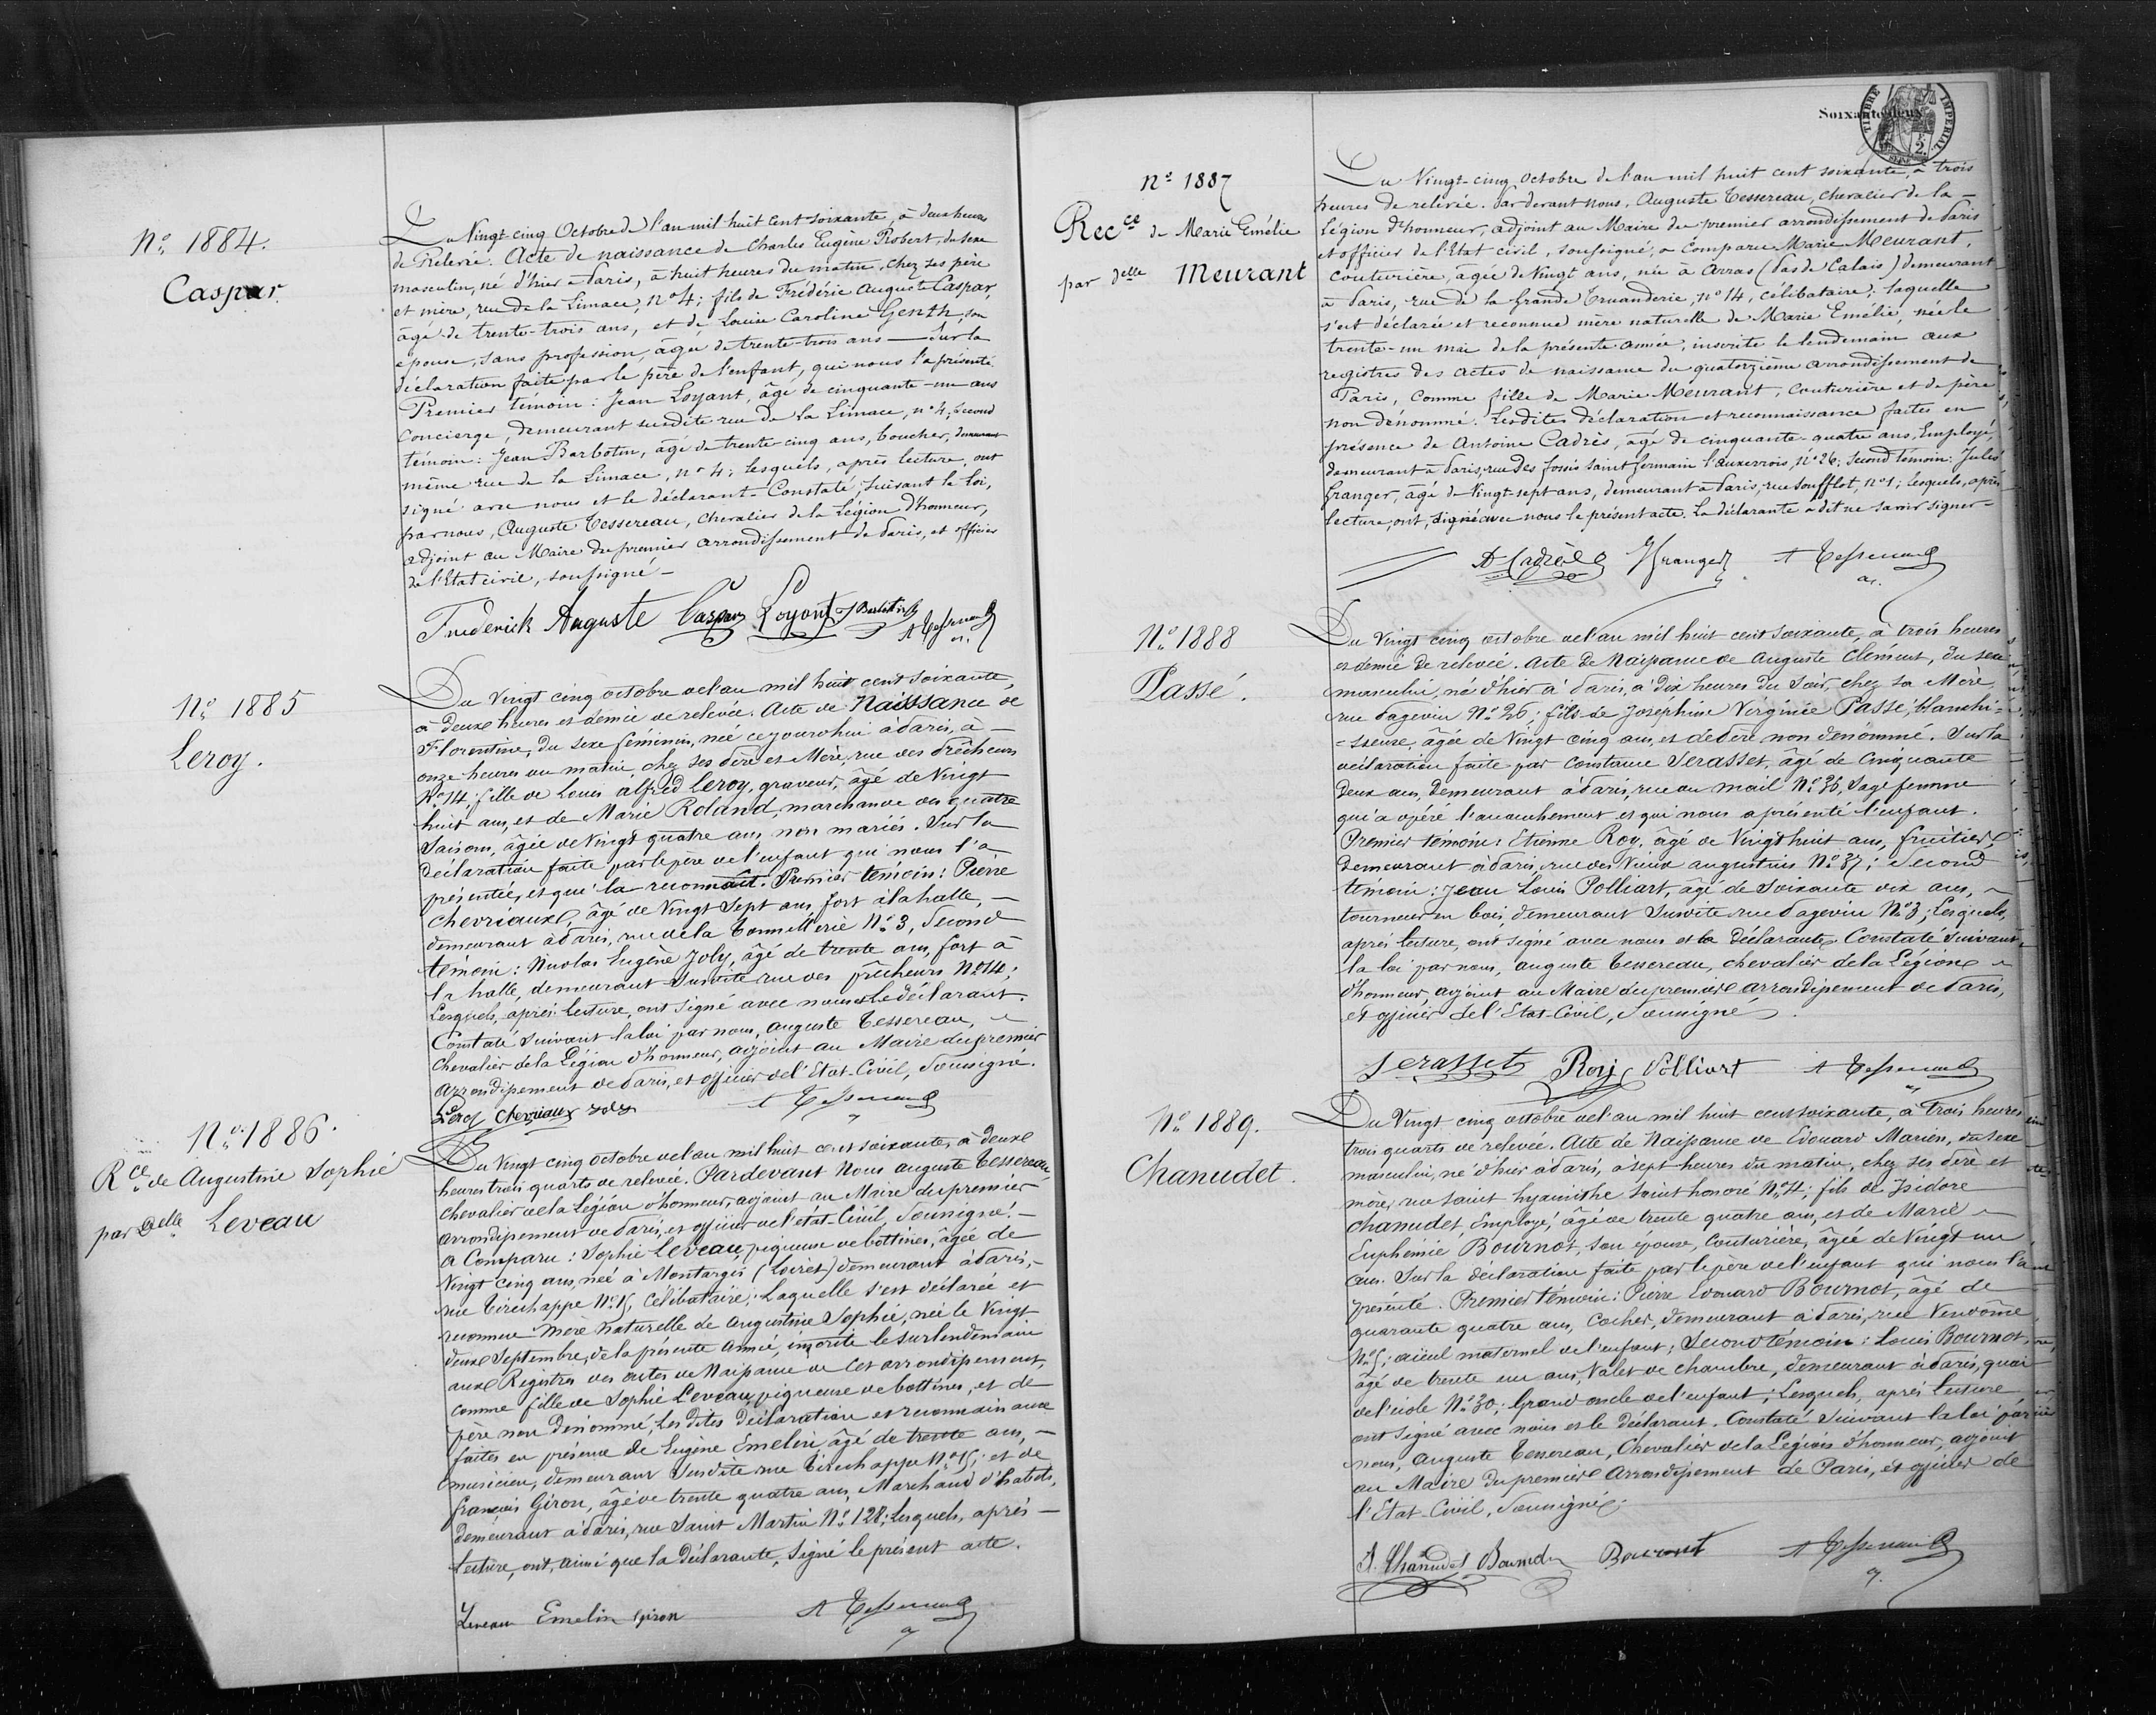 Nº 1884.
Caspar
Du Vingt cinq Octobre de l'an mil huit cent soixante, à deux heures
de Relevée. Acte de naissance de Charles Eugène Robert, du sexe
masculin, né d'hier à Paris, à huit heures du matin, chez ses père
et mère, rue de la Limace, nº 4; fils de Frédéric Auguste Caspar,
âgé de trente-trois ans, et de Louise Caroline Genth, son
épouse, sans profession, âgée de trente-trois ans — Sur la
déclaration faite par le père de l'enfant, qui nous l'a présenté.
Premier témoin: Jean Loyant, âgé de cinquante-un ans
Concierge, demeurant susdite rue de la Limace, nº 4, second
témoin: Jean Barbotin, âgé de trente cinq ans, boucher, demeurant
même rue de la Limace, nº 4; lesquels, après lecture, ont
signé avec nous et le déclarant- Constaté, suivant la loi,
par nous, Auguste Tessereau, Chevalier de la Légion d'honneur,
adjoint au Maire du premier arrondissement de Paris, et officier
de l'Etat civil, soussigné -
Frederick Auguste Caspar Loyant J Barbotin A Tessereau
Nº 1885
Leroy.
Du Vingt cinq octobre de l'an mil huit cent soixante,
à deux heures et demie de relevée. Acte de Naissance de
Florentine, du sexe féminin, née cejourd'hui à Paris, à -
onze heures du matin, chez ses Père et Mère, rue des Prêcheurs
Nº 14; fille de Louis alfred Leroy, graveur, âgé de Vingt
huit ans, et de Marie Roland, marchande des quatre
Saisons, âgée de Vingt quatre ans, non mariés. Sur la
déclaration faite par le père de l'enfant qui nous l'a
présentée, et qui la reconnait. Premier témoin: Pierre
Chevriaux, âgé de Vingt Sept ans, fort à la halle, -
demeurant à Paris, rue de la Tonnellerie Nº 3, Second
témoin: Nicolas Eugène Joly, âgé de trente ans, fort à
la halle, demeurant Susdite rue des prêcheurs Nº 14;
Lesquels, après lecture, ont signé avec nous et le déclarant.
Constaté Suivant la loi par nous, Auguste Tessereau,
Chevalier de la Légion d'honneur, adjoint au Maire du premier
Arrondissement de Paris, et officier de l'Etat-Civil, Soussigné.
Leroy Chevriaux Joly A Tessereau
Nº 1886.
Rce de Augustine Sophie
par Delle Leveau
Du Vingt cinq octobre de l'an mil huit cent soixante, à deux
heures trois quarts de relevée. Pardevant Nous Auguste Tessereau,
Chevalier de la Légion d'honneur, adjoint au Maire du premier
arrondissement de Paris, et officier de l'état-Civil, Soussigné, -
A Comparu: Sophie Leveau, piqueuse de bottines, âgée de
Vingt cinq ans, née à Montargis (Loiret) demeurant à Paris, -
rue Tirechappe Nº 15, Célibataire; Laquelle s'est déclarée et
reconnue mère naturelle de Augustine Sophie, née le Vingt
deux Septembre, de la présente Année, inscrite le surlendemain
aux Registres des actes de Naissance de Cet arrondissement,
comme fille de Sophie Leveau, piqueuse de bottines, et de
père non dénommé, Les dites Déclaration et reconnaissance
faites en présence de Eugène Emelin, âgé de trente ans, -
musicien, demeurant Susdite rue Tirechappe Nº 15; et de
françois Giron, âgé de trente quatre ans, Marchand d'habits,
demeurant à Paris, rue Saint Martin Nº 128; Lesquels, après -
lecture, ont, ainsi que la Déclarante, Signé le présent acte.
Leveau Emelin Giron A Tessereau
Soixante-deux
TIMBRE IMPÉRIAL
2.
Nº 1887
Recce de Marie Emélie
par delle Meurant
Du Vingt-cinq octobre de l'an mil huit cent soixante, à trois
heures de relevée. Par devant nous, Auguste Tessereau, Chevalier de la -
Légion d'honneur, adjoint au Maire du premier arrondissement de Paris
et officier de l'Etat civil, soussigné, a comparu Marie Meurant,
couturière, âgée de Vingt ans, née à Arras (Pas de Calais) demeurant
à Paris, rue de la Grande Truanderie, nº 14, célibataire; laquelle
s'est déclarée et reconnue mère naturelle de Marie Emélie, née le
trente-un mai de la présente année, inscrite le lendemain aux
registres des actes de naissance du quatorzième arrondissement de
Paris, comme fille de Marie Meurant, Couturière et de père
non dénommé. Lesdites déclaration et reconnaissance faites en
présence de Antoine Cadrès, âgé de cinquante-quatre ans, Employé,
demeurant à Paris, rue des fossés saint germain l'auxerrois, nº 26; Second témoin: Jules
Granger, âgé de Vingt-sept ans, demeurant à Paris, rue Soufflot, nº 1; lesquels, après
lecture, ont, signé avec nous le présent acte. La déclarante a dit ne savoir signer -
A Cadrès J Granger A Tessereau
Nº 1888
Passé.
Du Vingt cinq octobre de l'an mil huit cent soixante, à trois heures
et demie de relevée. Acte de Naissance de Auguste Clément, du sexe
masculin, né d'hier à Paris, à Dix heures du Soir, chez sa Mère,
rue Pagevin Nº 26; fils de Joséphine Virginie Passé, blanchi=
=sseuse, âgée de Vingt cinq ans, et de Père non dénommé. Sur la
déclaration faite par Constance Serasset, âgée de Cinquante
Deux ans, Demeurant à Paris, rue du mail Nº 36, Sage femme
qui a opéré l'accouchement et qui nous a présenté l'enfant.
Premier témoin: Etienne Roy, âgé de Vingt huit ans, fruitier,
Demeurant à Paris, rue des Vieux augustins Nº 37; Second
témoin: Jean Louis Polliart, âgé de Soixante dix ans,
tourneur en bois, demeurant Susdite rue Pagevin Nº 3; Lesquels,
après lecture, ont signé avec nous et la Déclarante. Constaté Suivant
la loi par nous, auguste Tessereau, chevalier de la Légion
d'honneur, adjoint au Maire du premier arrondissement de Paris,
et officier de l'Etat-Civil, Soussigné.
Serasset Roy Polliart A Tessereau
Nº 1889.
Chanudet.
Du Vingt cinq octobre de l'an mil huit cent soixante, à trois heures
trois quarts de relevée. Acte de Naissance de Edouard Marien, du Sexe
masculin, né d'hier à Paris, à sept heures du matin, chez ses Père et
mère, rue Saint hyacinthe Saint honoré Nº 4; fils de Isidore
Chanudet, Employé, âgé de trente quatre ans, et de Marie
Euphémie Bournot, son épouse, Couturière, âgée de Vingt un
ans. Sur la déclaration faite par le père de l'enfant qui nous l'a
présenté. Premier témoin: Pierre Edouard Bournot, âgé de
quarante quatre ans, Cocher, demeurant à Paris, rue Vendôme
Nº 5; aïeul maternel de l'enfant; Second témoin: Louis Bournot,
âgé de trente un ans, Valet de chambre, demeurant à Paris, quai
de l'école Nº 30; Grand oncle de l'enfant; Lesquels, après lecture
ont signé avec nous et le Déclarant. Constaté Suivant la loi par
nous, Auguste Tessereau, Chevalier de la Légion d'honneur, adjoint
au Maire du premier Arrondissement de Paris, et officier de
l'Etat-Civil, Soussigné.
I. Chanudet Bournot Bournot A Tessereau